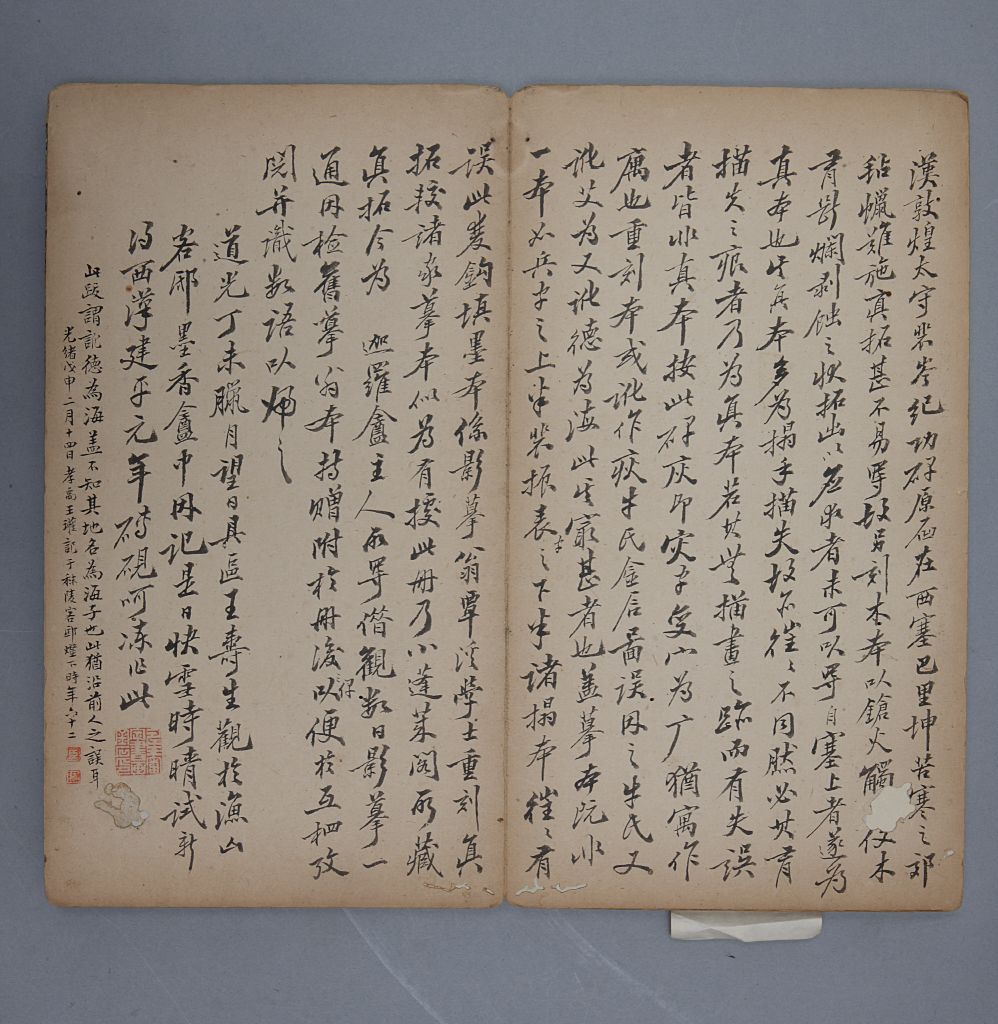 漢敦煌太守裴岑紀功碑原石在西塞巴里坤苦寒之郊
毡蠟難施真拓甚不易得故另刻木本以鎗火觸 仅木
有斷爛剥蝕之狀拓出以应求者未可以得自塞上者遂為
真本也其真本多為搨手描失故亦徃〻不同然必其有
描失之痕者乃為真本若其無描畫之跡而有失誤
者皆非真本按此碑灰即灾字变宀為广猶寓作
庽也重刻本或訛作疢牛氏金石圖誤因之牛氏又
訛艾為又訛德為海此其最甚者也盖摹本既非
一本如兵字之上半裴振表之下半諸搨本徃〻有
誤此雙鈎填墨本係影摹翁覃谿學士重刻真
拓較諸家摹本似為有據此册乃小蓬萊閣所藏
真拓今為 迦羅盦主人所得借觀数日影摹一
通因检舊摹翁本持贈附於册後以便於互相攷
閲并識数語以歸之
道光丁未臘月望日具區王壽生觀於漁山
客邸墨香盦中因记是日快雪時晴试新
得西漢建平元年磚硯呵凍作此
此跋謂訛德為海盖不知其地名為海子也此猶沿前人之誤耳
光緒戊申二月十四日孝禹王瓘記于秣陵客邸燈下時年六十二